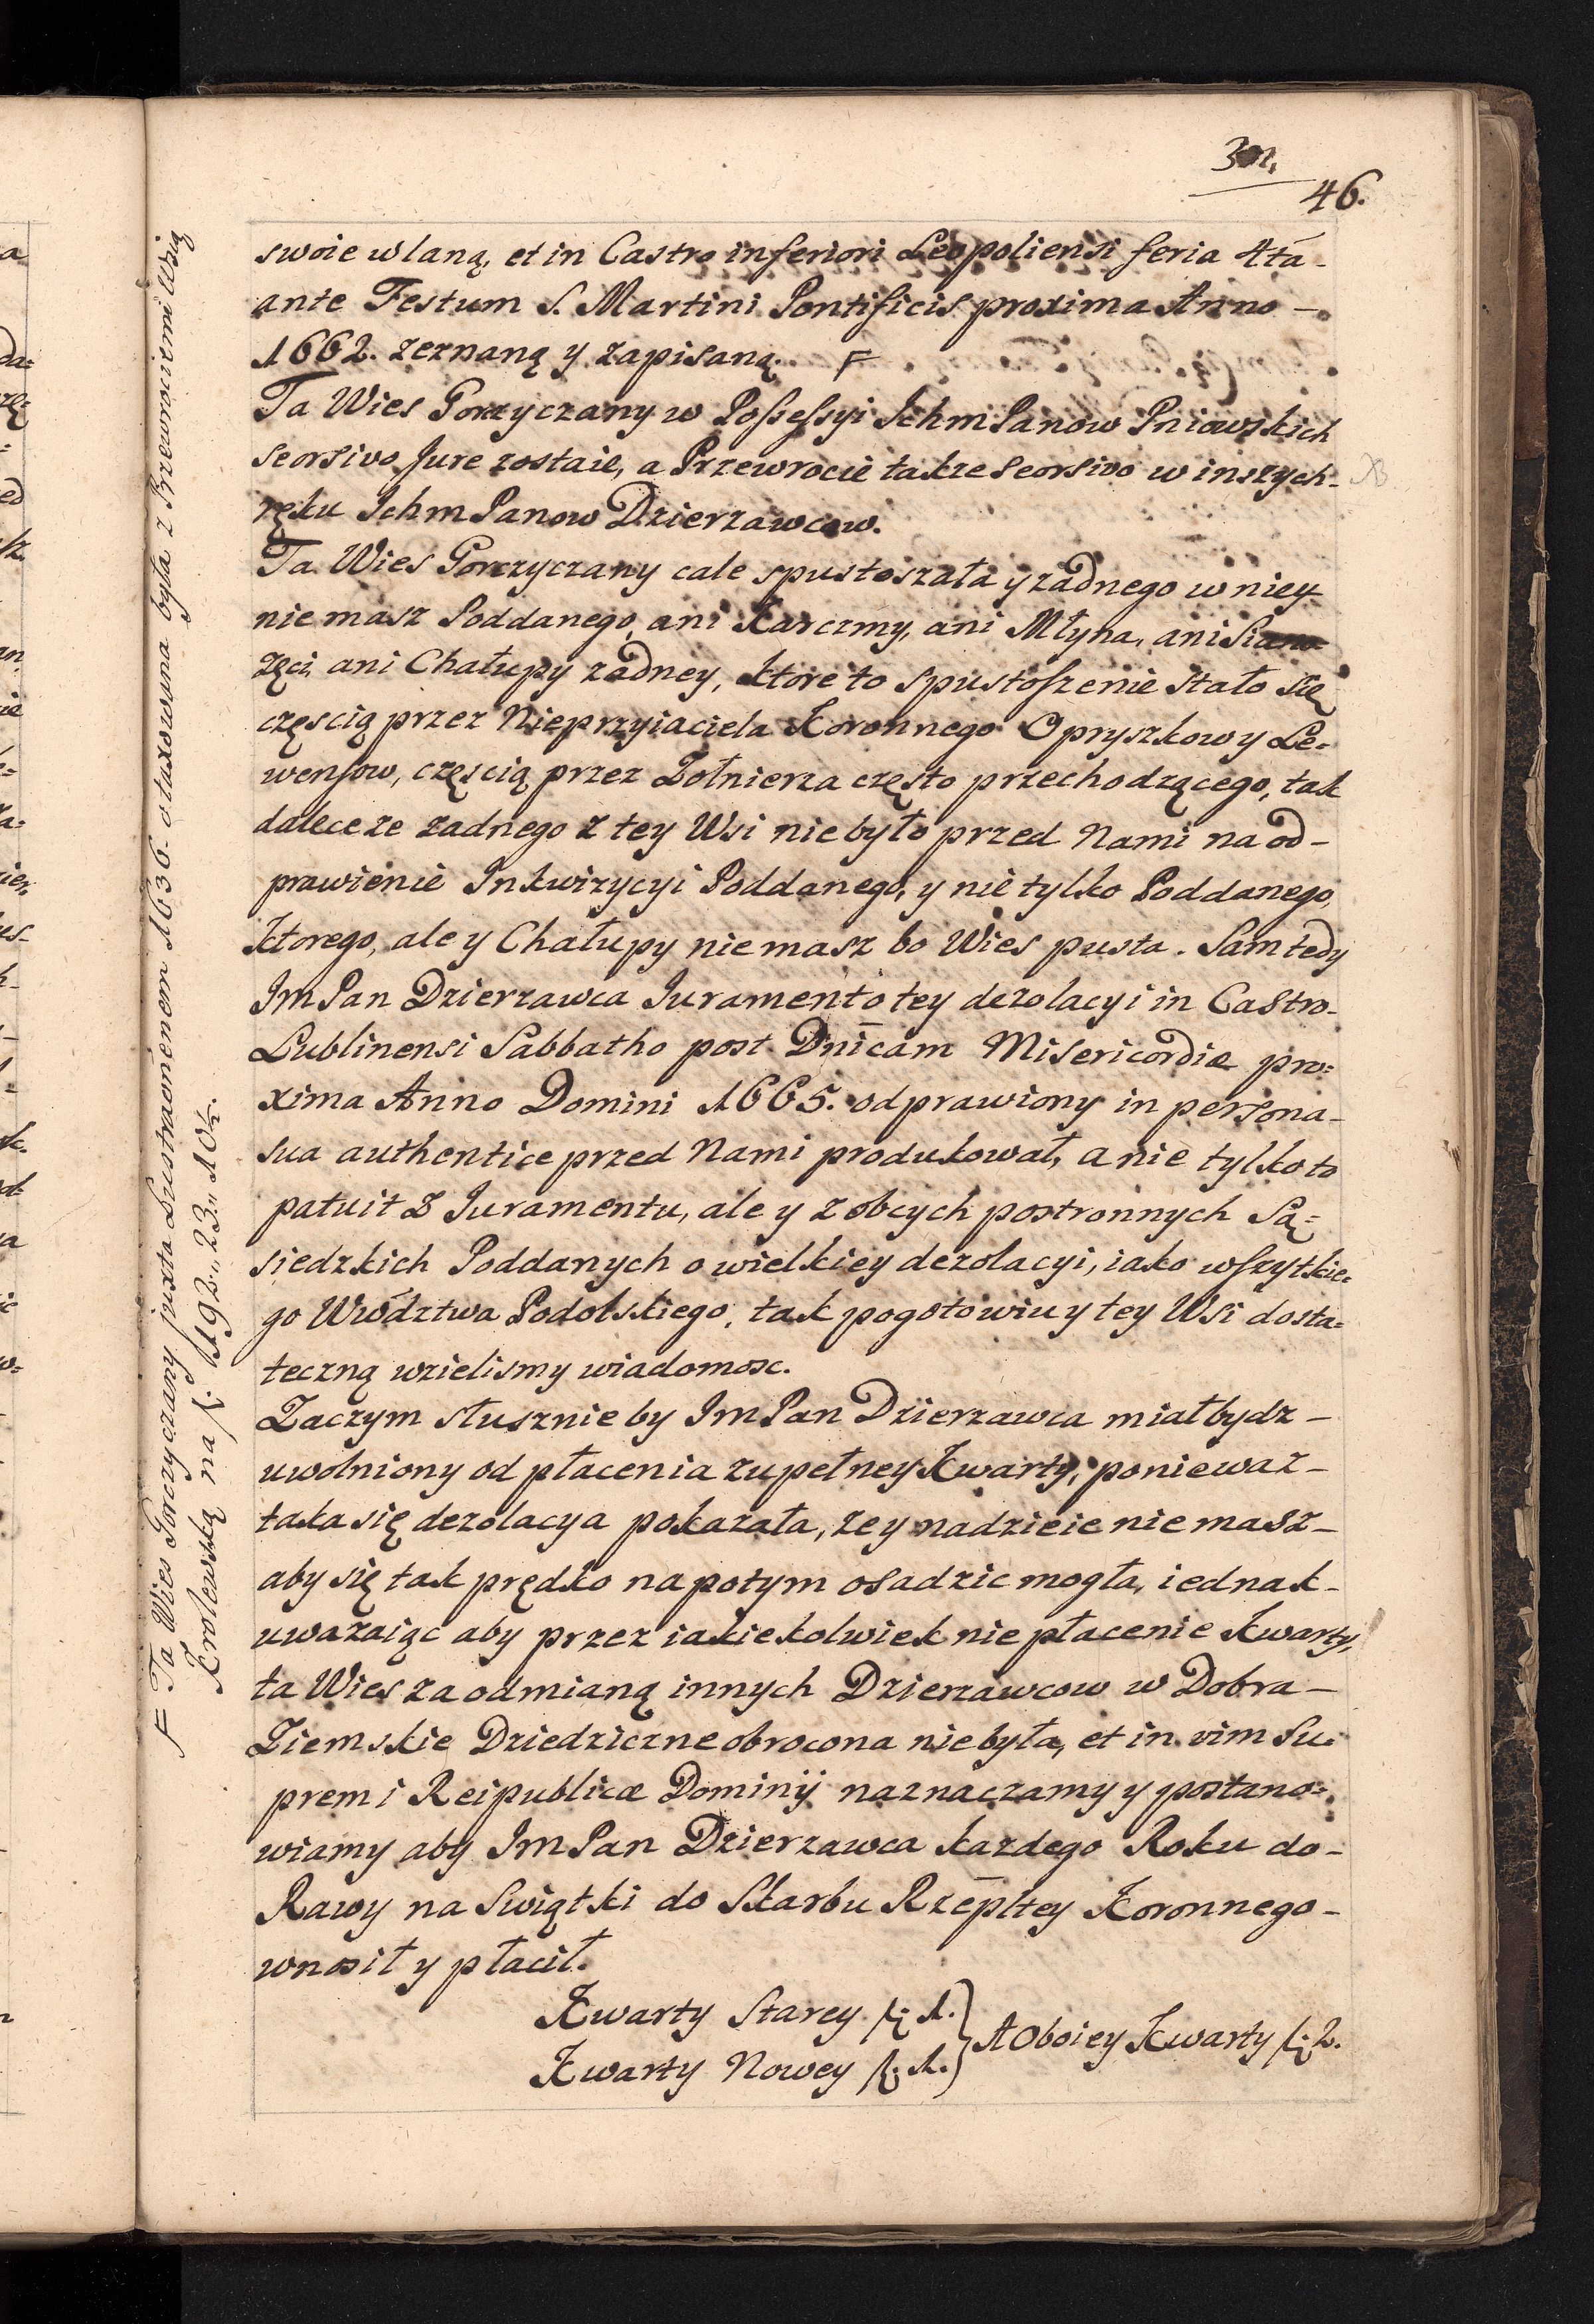 46.
swoie wlaną, et in Castro inferiori Leopoliensi feria 4ta-
ante Festum S. Martini Pontificis proxima Anno -
1662. zeznaną y zapisaną. F
Ta Wies Gorczyczany w Possessyi Ichm Panow Pniowskich
seorsivo Jure zostaie, a Przewrocie takze seorsivo w inszych-
ręku Ichm Panow Dzierzawcow.
Ta Wies Gorczyczany cale spustoszała y zadnego w niey
nie masz Poddanego, ani Karczmy, ani Młyna, ani Siano-
zęci, ani Chałupy zadney, ktore to spustoszenie stało się
częscią przez Nieprzyiaciela Koronnego Opryszkow y Le=
wensow, częscią przez Zołnierza często przechodzącego, tak
dalece ze zadnego z tey Wsi nie było przed Nami na od-
prawienie Inkwizycyi Poddanego, y nie tylko Poddanego,
ktorego, ale y Chałupy nie masz bo Wies pusta. Sam tedy
Im Pan Dzierzawca Iurament o tey dezolacyi in Castro-
Lublinensi Sabbatho post Dnicam Misericordiæ pro=
xima Anno Domini 1665. odprawiony in persona-
sua authentice przed Nami produkował, a nie tylko to
patuit z Iuramentu, ale y z obcych postronnych Są=
siedzkich Poddanych o wielkiey dezolacyi, iako wszytkie=
go Wwodztwa Podolskiego, tak pogotowiu y tey Wsi dosta=
teczną wzielismy wiadomosc.
Zaczym słusznie by Im Pan Dzierzawca miał bydz-
uwolniony od płacenia zupełney Kwarty, poniewaz-
taka się dezolacya pokazała, ze y nadzieie nie masz-
aby się tak prędko napotym osadzic mogła, iednak-
uwazaiąc aby przez iakiekolwiek nie płacenie Kwarty,
ta Wies za odmianą innych Dzierzawcow w Dobra-
Ziemskie Dziedziczne obrocona nie była, et in vim Su=
premi Reipublicæ Dominij naznaczamy y postano=
wiamy aby Im Pan Dzierzawca kazdego Roku do-
Rawy na Swiątki do Skarbu Rzepltey Koronnego-
wnosił y płacił.
Kwarty Starey f: 1. } A Oboiey Kwarty f: 2.
Kwarty Nowey f: 1.
F Ta Wies Gorczyczany juxta Lustraõnem 1636. otaxowana była z Przewrociemi Wsią
Krolewską na f: 1192 „ 23 „ 10½.